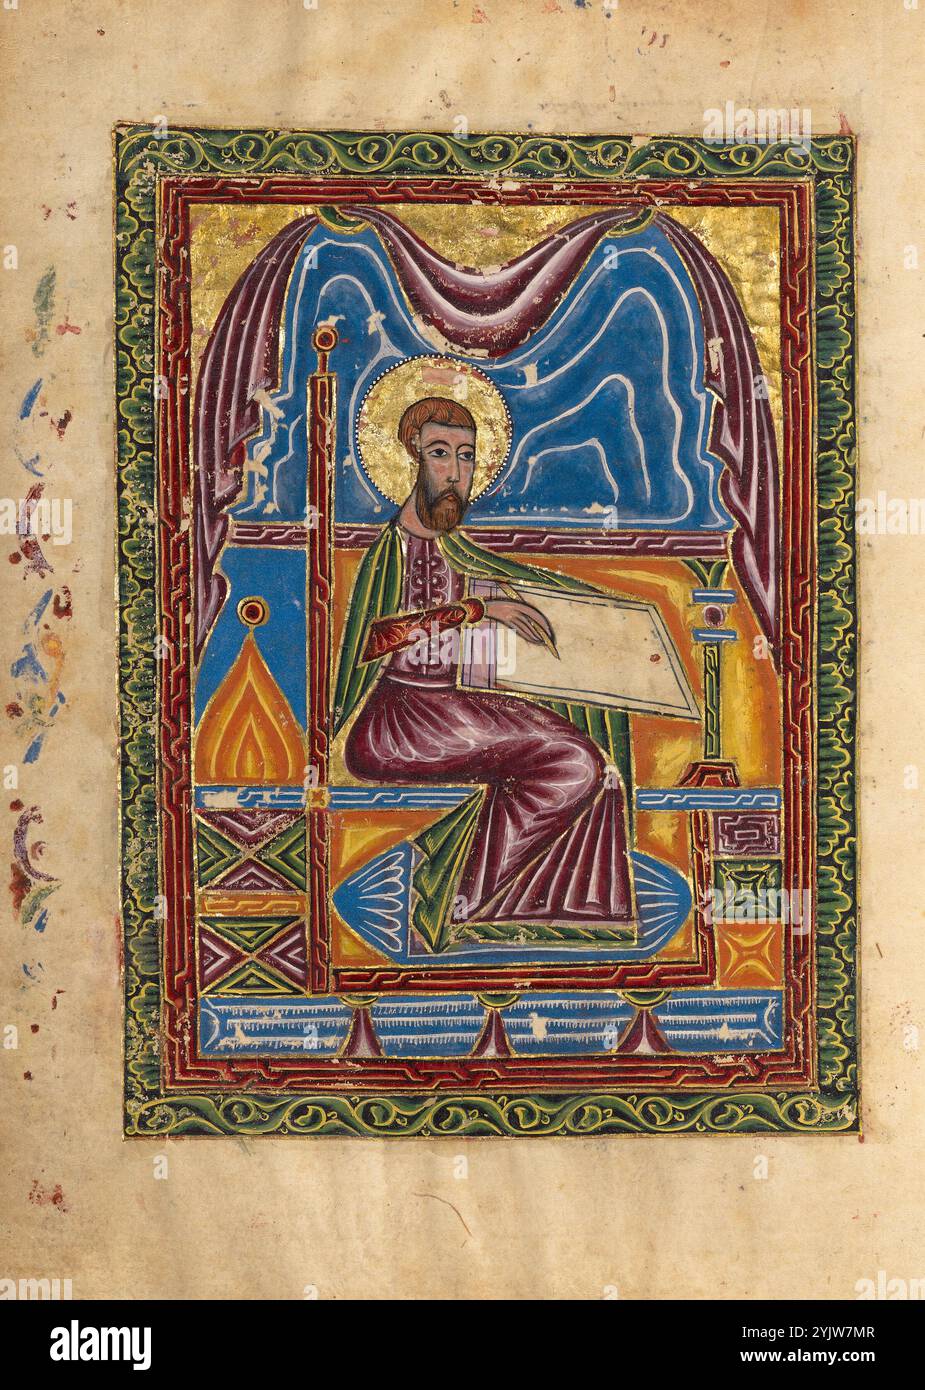 alamy
Image ID: 2YJW7MR
www.alamy.com